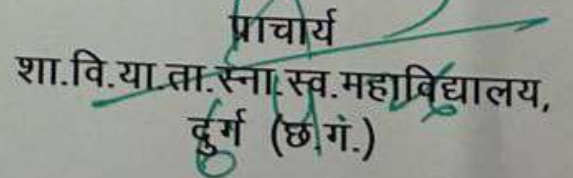 प्राचार्य
शा.वि.या.ता.स्ना.स्व.महाविद्यालय,
दुर्ग (छ.गं.)